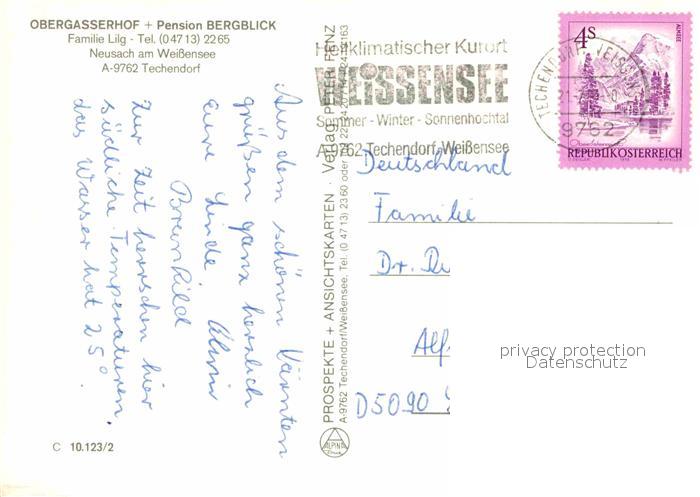 OBERGASSERHOF + Pension BERGBLICK
Familie Lilg - Tel. (04713) 2265
Neusach am Weißensee
A-9762 Techendorf
Aus dem schönen Kärnten
grüßen ganz herzlich
Eure Linde
Zur Zeit herrschen hier
südliche Temperaturen,
das Wasser hat 25°.
C 10.123/2
PROSPEKTE + ANSICHTSKARTEN · Verlag PETER FENZ
A-9762 Techendorf/Weißensee, Tel. (04713) 2360 oder
ALPINA
Heilklimatischer Kurort
WEISSENSEE
Sommer - Winter - Sonnenhochtal
A-9762 Techendorf, Weißensee
9762
4S
ALMSEE
REPUBLIK ÖSTERREICH
Deutschland
Familie
Dr.
Alf
D5090
privacy protection
Datenschutz